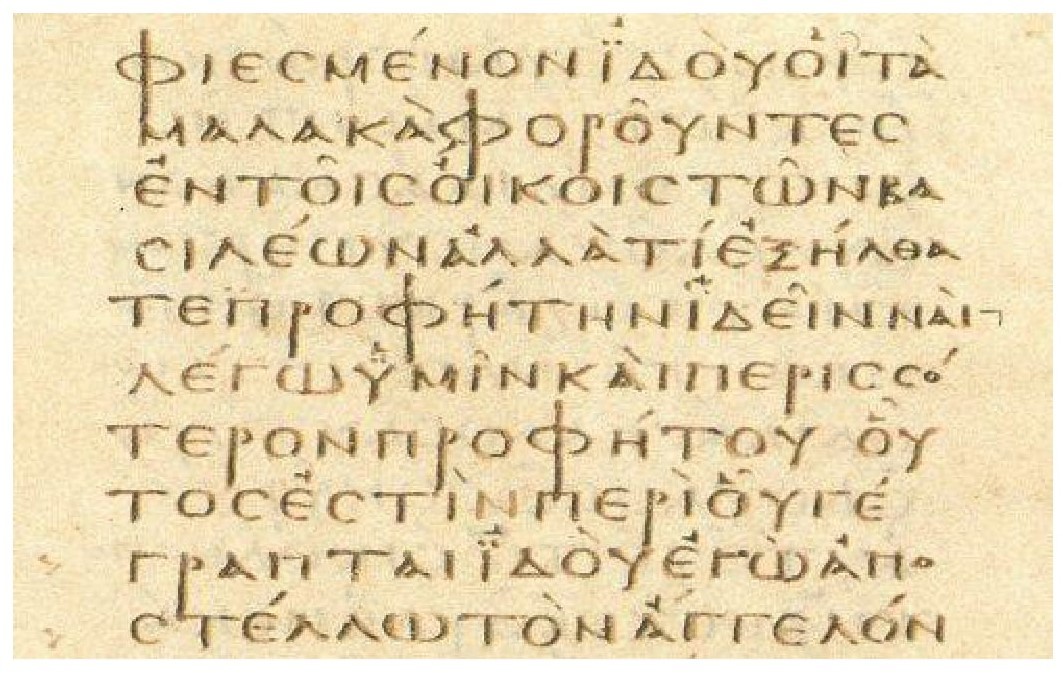 ΦΙΕϹΜΈΝΟΝΪ̓ΔΟῪΟἹΤᾺ
ΜΑΛΑΚᾺΦΟΡΟῩ͂ΝΤΕϹ
ἘΝΤΟΙ͂ϹΟἼΚΟΙϹΤΩ͂ΝΒΑ
ϹΙΛΈΩΝἈΛΛᾺΤΊἘΞΉΛΘΑ
ΤΕΠΡΟΦΉΤΗΝΪ̓ΔΕΙ͂ΝΝΑῚ¬
ΛΈΓΩΫ̔ΜΙ͂ΝΚΑῚΠΕΡΙϹϹΌ
ΤΕΡΟΝΠΡΟΦΉΤΟΥ ΟὟ
ΤΟϹἘϹΤῚΝΠΕΡῚΟὟΓΈ
ΓΡΑΠΤΑΙΪ̓ΔΟῪἘΓῺἈΠΟ
ϹΤΈΛΛΩΤῸΝἌΓΓΕΛΌΝ